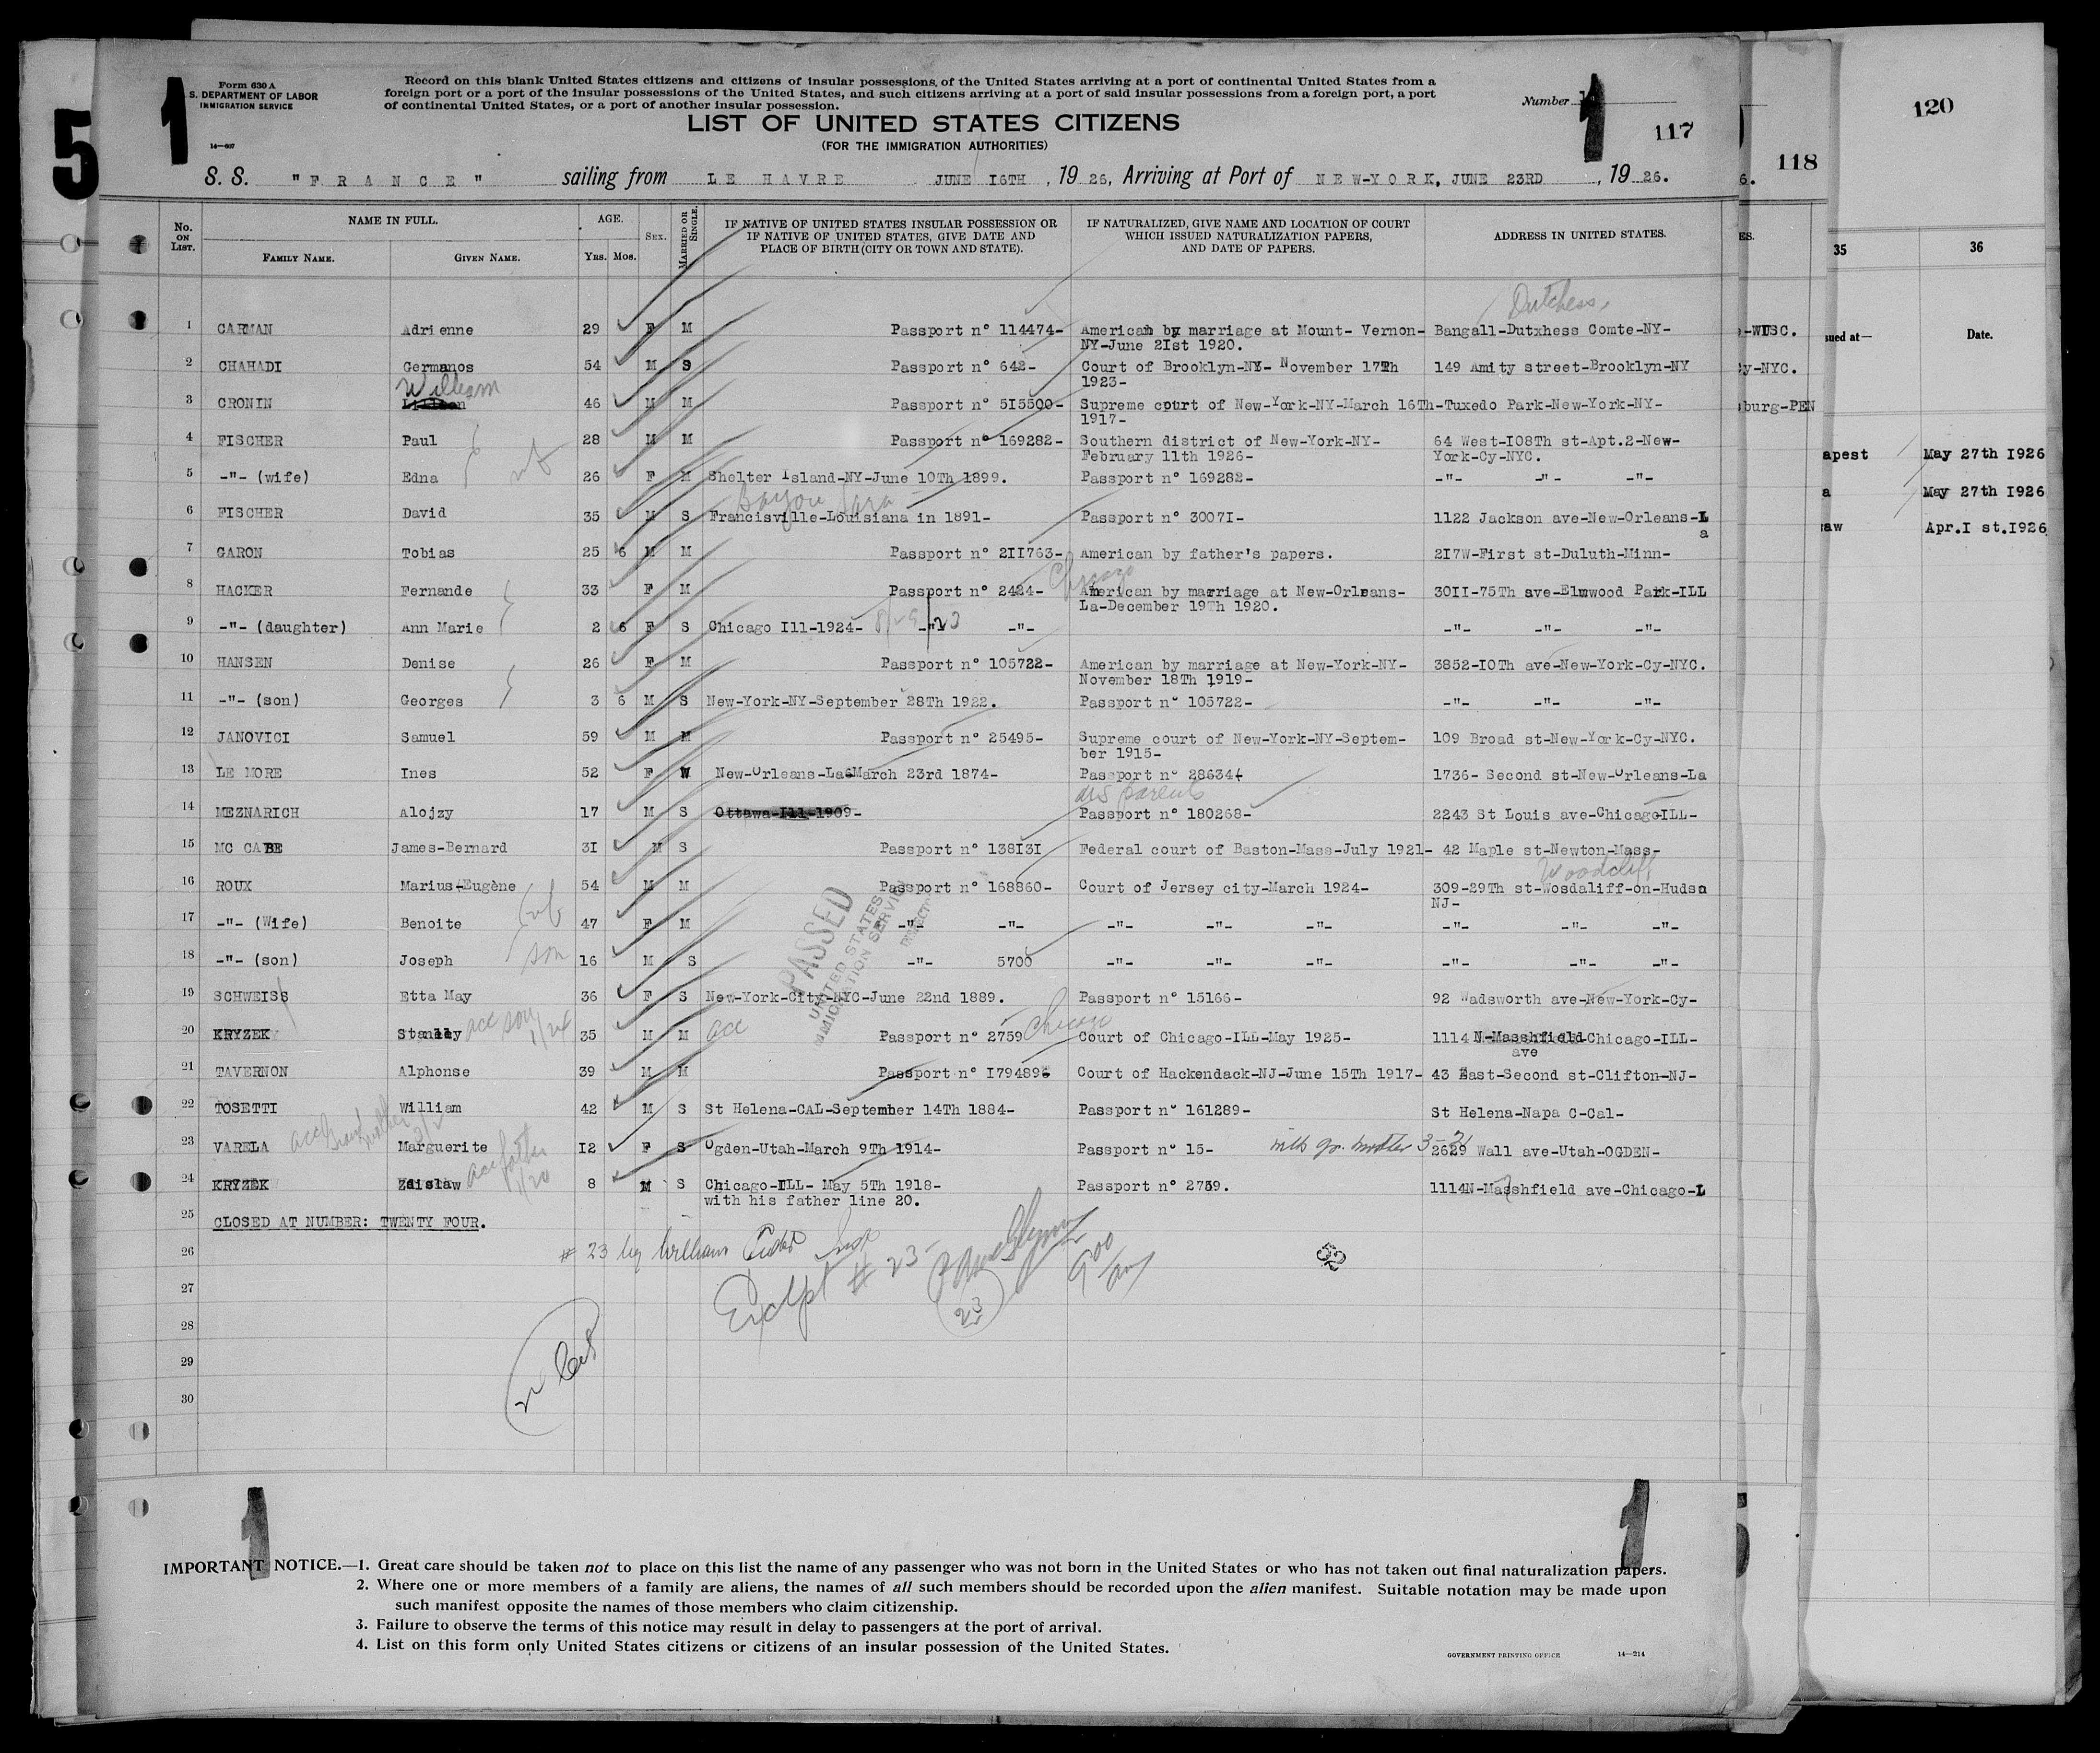 5
1
Form 630 A
S. DEPARTMENT OF LABOR
IMMIGRATION SERVICE
14—607
Record on this blank United States citizens and citizens of insular possessions, of the United States arriving at a port of continental United States from a
foreign port or a port of the insular possessions of the United States, and such citizens arriving at a port of said insular possessions from a foreign port, a port
of continental United States, or a port of another insular possession.
Number 1
1
117
118
120
LIST OF UNITED STATES CITIZENS
(FOR THE IMMIGRATION AUTHORITIES)
S. S. "FRANCE" sailing from LE HAVRE JUNE I6TH , 19 26, Arriving at Port of NEW-YORK, JUNE 23RD , 19 26.
6.
No. ON LIST. NAME IN FULL. FAMILY NAME. GIVEN NAME. AGE. Yrs. Mos. SEX. MARRIED OR SINGLE.
IF NATIVE OF UNITED STATES INSULAR POSSESSION OR
IF NATIVE OF UNITED STATES, GIVE DATE AND
PLACE OF BIRTH (CITY OR TOWN AND STATE).
IF NATURALIZED, GIVE NAME AND LOCATION OF COURT
WHICH ISSUED NATURALIZATION PAPERS,
AND DATE OF PAPERS.
ADDRESS IN UNITED STATES.
ES.
35 36
sued at— Date.
Dutchess,
1 CARMAN Adrienne 29 F M Passport n° 114474- American by marriage at Mount- Vernon- Bangall-Dutxhess Comte-NY-
NY-June 2Ist 1920.
-WISC.
2 CHAHADI Germanos 54 M S Passport n° 642- Court of Brooklyn-NY- November 17Th 149 Amity street-Brooklyn-NY
1923-
y-NYC.
William
3 CRONIN 46 M M Passport n° 5I5500- Supreme court of New-York-NY-March 16Th-Tuxedo Park-New-York-NY-
1917-
burg-PEN
4 FISCHER Paul 28 M M Passport n° 169282- Southern district of New-York-NY- 64 West-I08Th st-Apt.2-New-
February 11th 1926- York-Cy-NYC.
apest May 27th I926
5 -"- (wife) Edna 26 F M Shelter Island-NY-June 10Th 1899. Passport n° 169282- -"- -"- -"-
a May 27th I926
Bayou Sara
6 FISCHER David 35 M S Francisville-Louisiana in 1891- Passport n° 3007I- 1122 Jackson ave-New-Orleans-L
a
aw Apr.I st.I926
7 GARON Tobias 25 6 M M Passport n° 2II763- American by father's papers. 2I7W-First st-Duluth-Minn-
Chicago
8 HACKER Fernande 33 F M Passport n° 2424- American by marriage at New-Orleans- 30II-75Th ave-Elmwood Park-ILL
La-December 19Th 1920.
9 -"- (daughter) Ann Marie 2 6 F S Chicago Ill-1924- -"- -"- -"- -"- -"-
10 HANSEN Denise 26 F M Passport n° 105722- American by marriage at New-York-NY- 3852-I0Th ave-New-York-Cy-NYC.
November 18Th 1919-
11 -"- (son) Georges 3 6 M S New-York-NY-September 28Th 1922. Passport n° 105722- -"- -"- -"-
12 JANOVICI Samuel 59 M M Passport n° 25495- Supreme court of New-York-NY-Septem- 109 Broad st-New-York-Cy-NYC.
ber 1915-
13 LE MORE Ines 52 F W New-Orleans-La-March 23rd 1874- Passport n° 28634 1736- Second st-New-Orleans-La
parents
14 MEZNARICH Alojzy 17 M S Ottawa-Ill-1909- Passport n° 180268- 2243 St Louis ave-Chicago-ILL-
15 MC CABE James-Bernard 3I M S Passport n° 138I3I Federal court of Baston-Mass-July 1921- 42 Maple st-Newton-Mass-
Woodcliff
16 ROUX Marius-Eugène 54 M M Passport n° 168860- Court of Jersey city-March 1924- 309-29Th st-Wosdaliff-on-Hudsn
NJ-
17 -"- (Wife) Benoite 47 F M -"- -"- -"- -"- -"- -"- -"- -"-
18 -"- (son) Joseph son 16 M S -"- 5700 -"- -"- -"- -"- -"- -"-
19 SCHWEISS Etta May 36 F S New-York-City-NYC-June 22nd 1889. Passport n° 15166- 92 Wadsworth ave-New-York-Cy-
20 KRYZEK Stanley acc son 35 M M acc Passport n° 2759 Chicago Court of Chicago-ILL-May 1925- 1114 N-Masshfield-Chicago-ILL-
ave
21 TAVERNON Alphonse 39 M M Passport n° I79489 Court of Hackendack-NJ-June 15Th 1917- 43 East-Second st-Clifton-NJ-
22 TOSETTI William 42 M S St Helena-CAL-September 14Th 1884- Passport n° 161289- St Helena-Napa C-Cal-
23 VARELA acc Grandmother Marguerite I2 F S Ogden-Utah-March 9Th 1914- Passport n° 15- with gr. mother 3-21 2629 Wall ave-Utah-OGDEN-
24 KRYZEK Zdislaw acc father 1/20 8 M S Chicago-ILL- May 5Th 1918- Passport n° 2759. 1114N-Masshfield ave-Chicago-L
with his father line 20.
PASSED
UNITED STATES
IMMIGRATION SERVICE
25 CLOSED AT NUMBER: TWENTY FOUR.
26 # 23 by William
Except # 23
23
9 00 am
52
27
28
29
30
1
1
IMPORTANT NOTICE.—1. Great care should be taken not to place on this list the name of any passenger who was not born in the United States or who has not taken out final naturalization papers.
2. Where one or more members of a family are aliens, the names of all such members should be recorded upon the alien manifest. Suitable notation may be made upon
such manifest opposite the names of those members who claim citizenship.
3. Failure to observe the terms of this notice may result in delay to passengers at the port of arrival.
4. List on this form only United States citizens or citizens of an insular possession of the United States.
GOVERNMENT PRINTING OFFICE 14—214